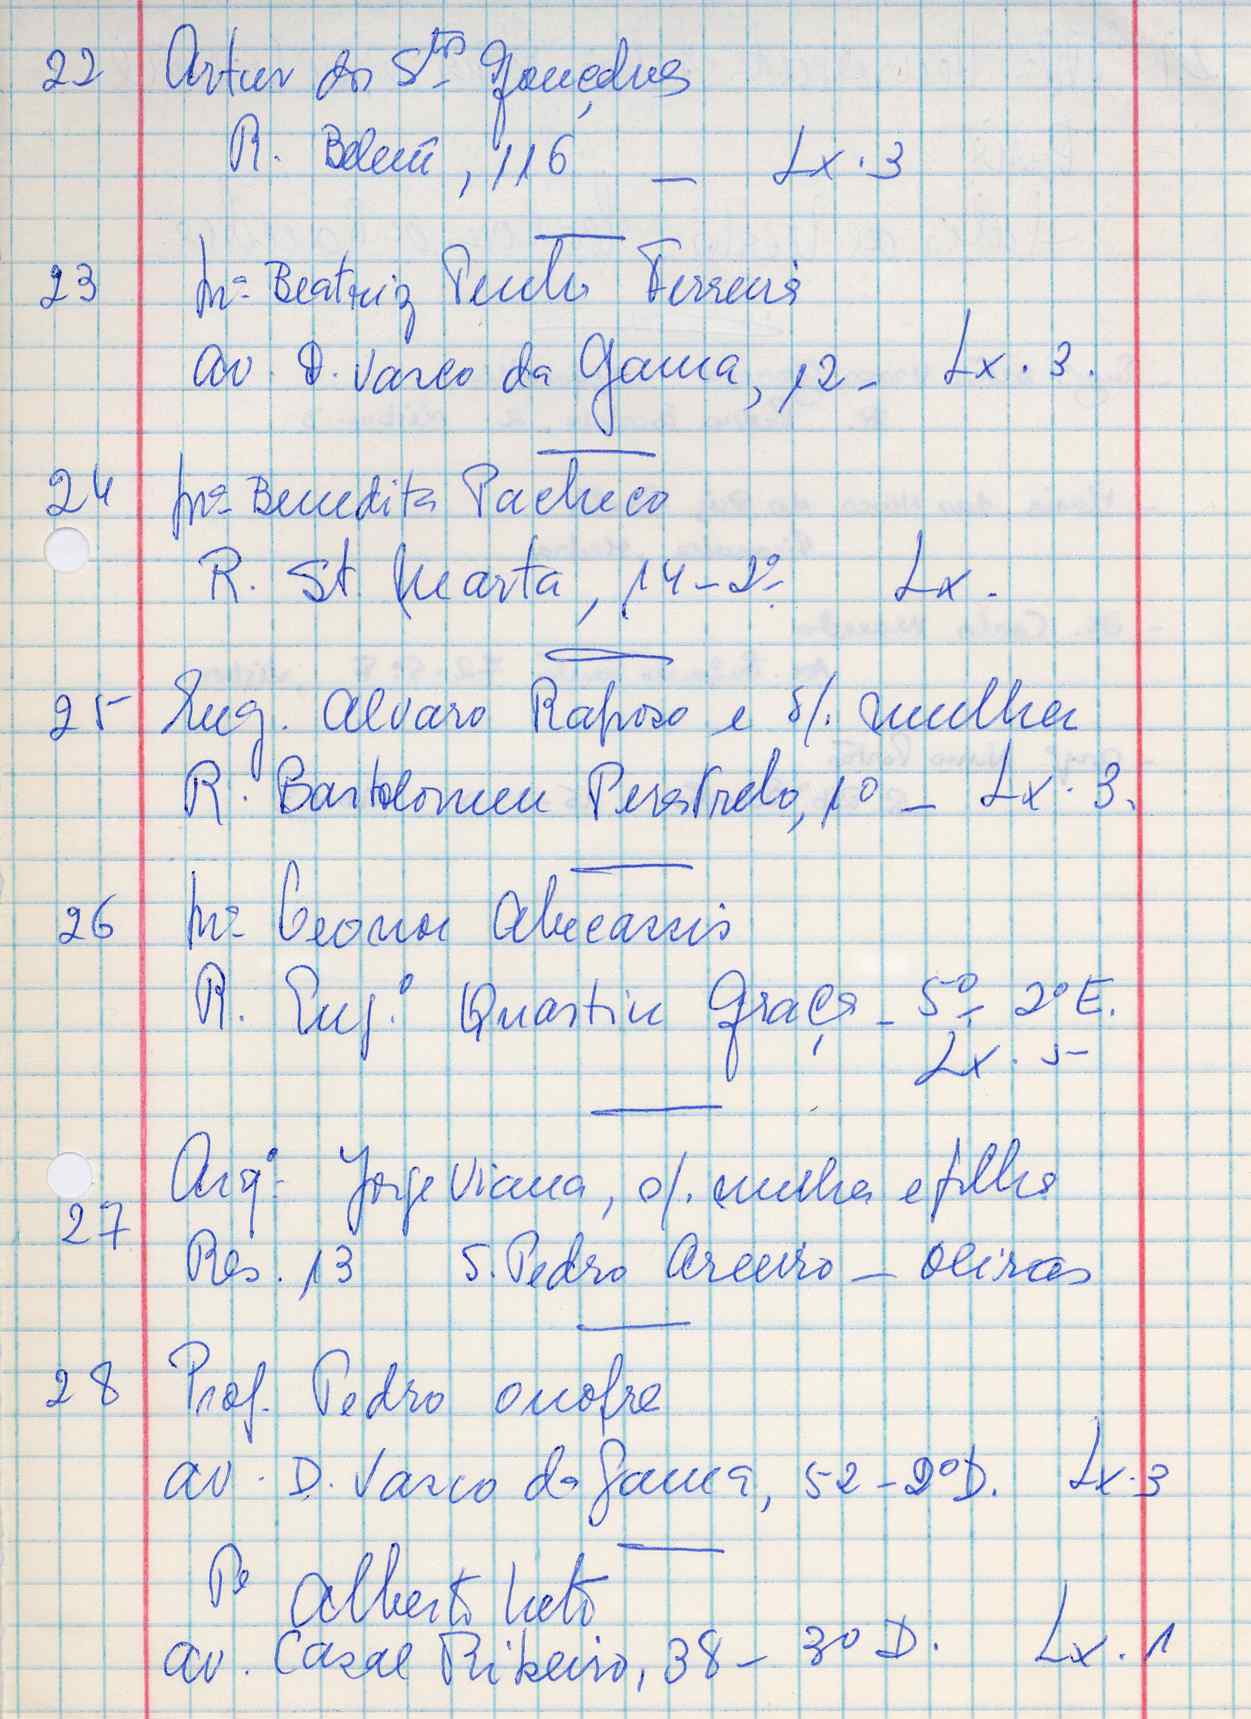 22 Artur dos Stos Gonçalves
R. Belem, 116 - Lx. 3
23 Mª Beatriz Ferreira
Av. D. Vasco da Gama, 12 - Lx. 3.
24 Mª Benedita Pacheco
R. St. Marta, 14-2º Lx.
25 Eng. Alvaro Raposo e s/. mulher
R. Bartolomeu Perestrelo, 10 - Lx. 3.
26 Mª Leonor Abecassis
R. Engº. Quartin Graça - 5º- 2º E.
Lx. 5
Arqº. Jorge Viana, s/. mulher e filho
27
Res. 13 S. Pedro Areeiro - Oeiras
28 Prof. Pedro Onofre
Av. D. Vasco da Gama, 52-2º D. Lx. 3
Pe Alberto Neto
Av. Casal Ribeiro, 38 - 3º D. Lx. 1